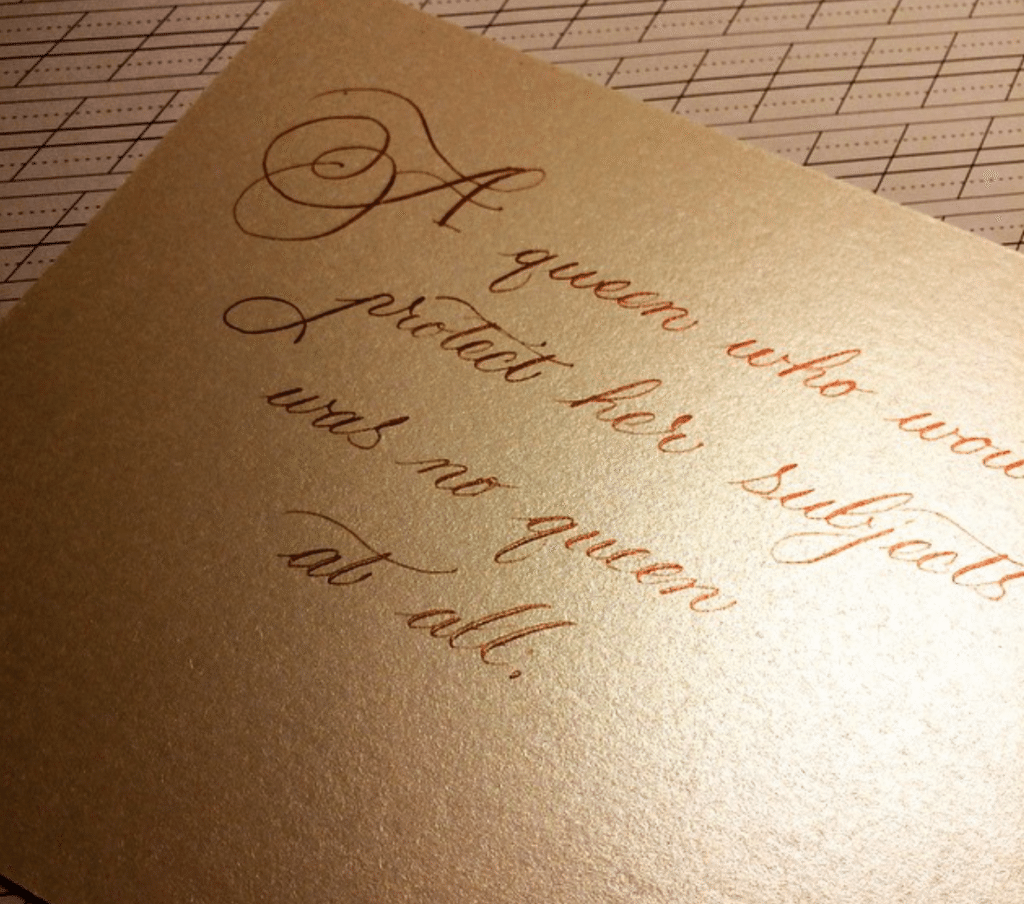 A queen who wou
protect her subjects
was no queen
at all.